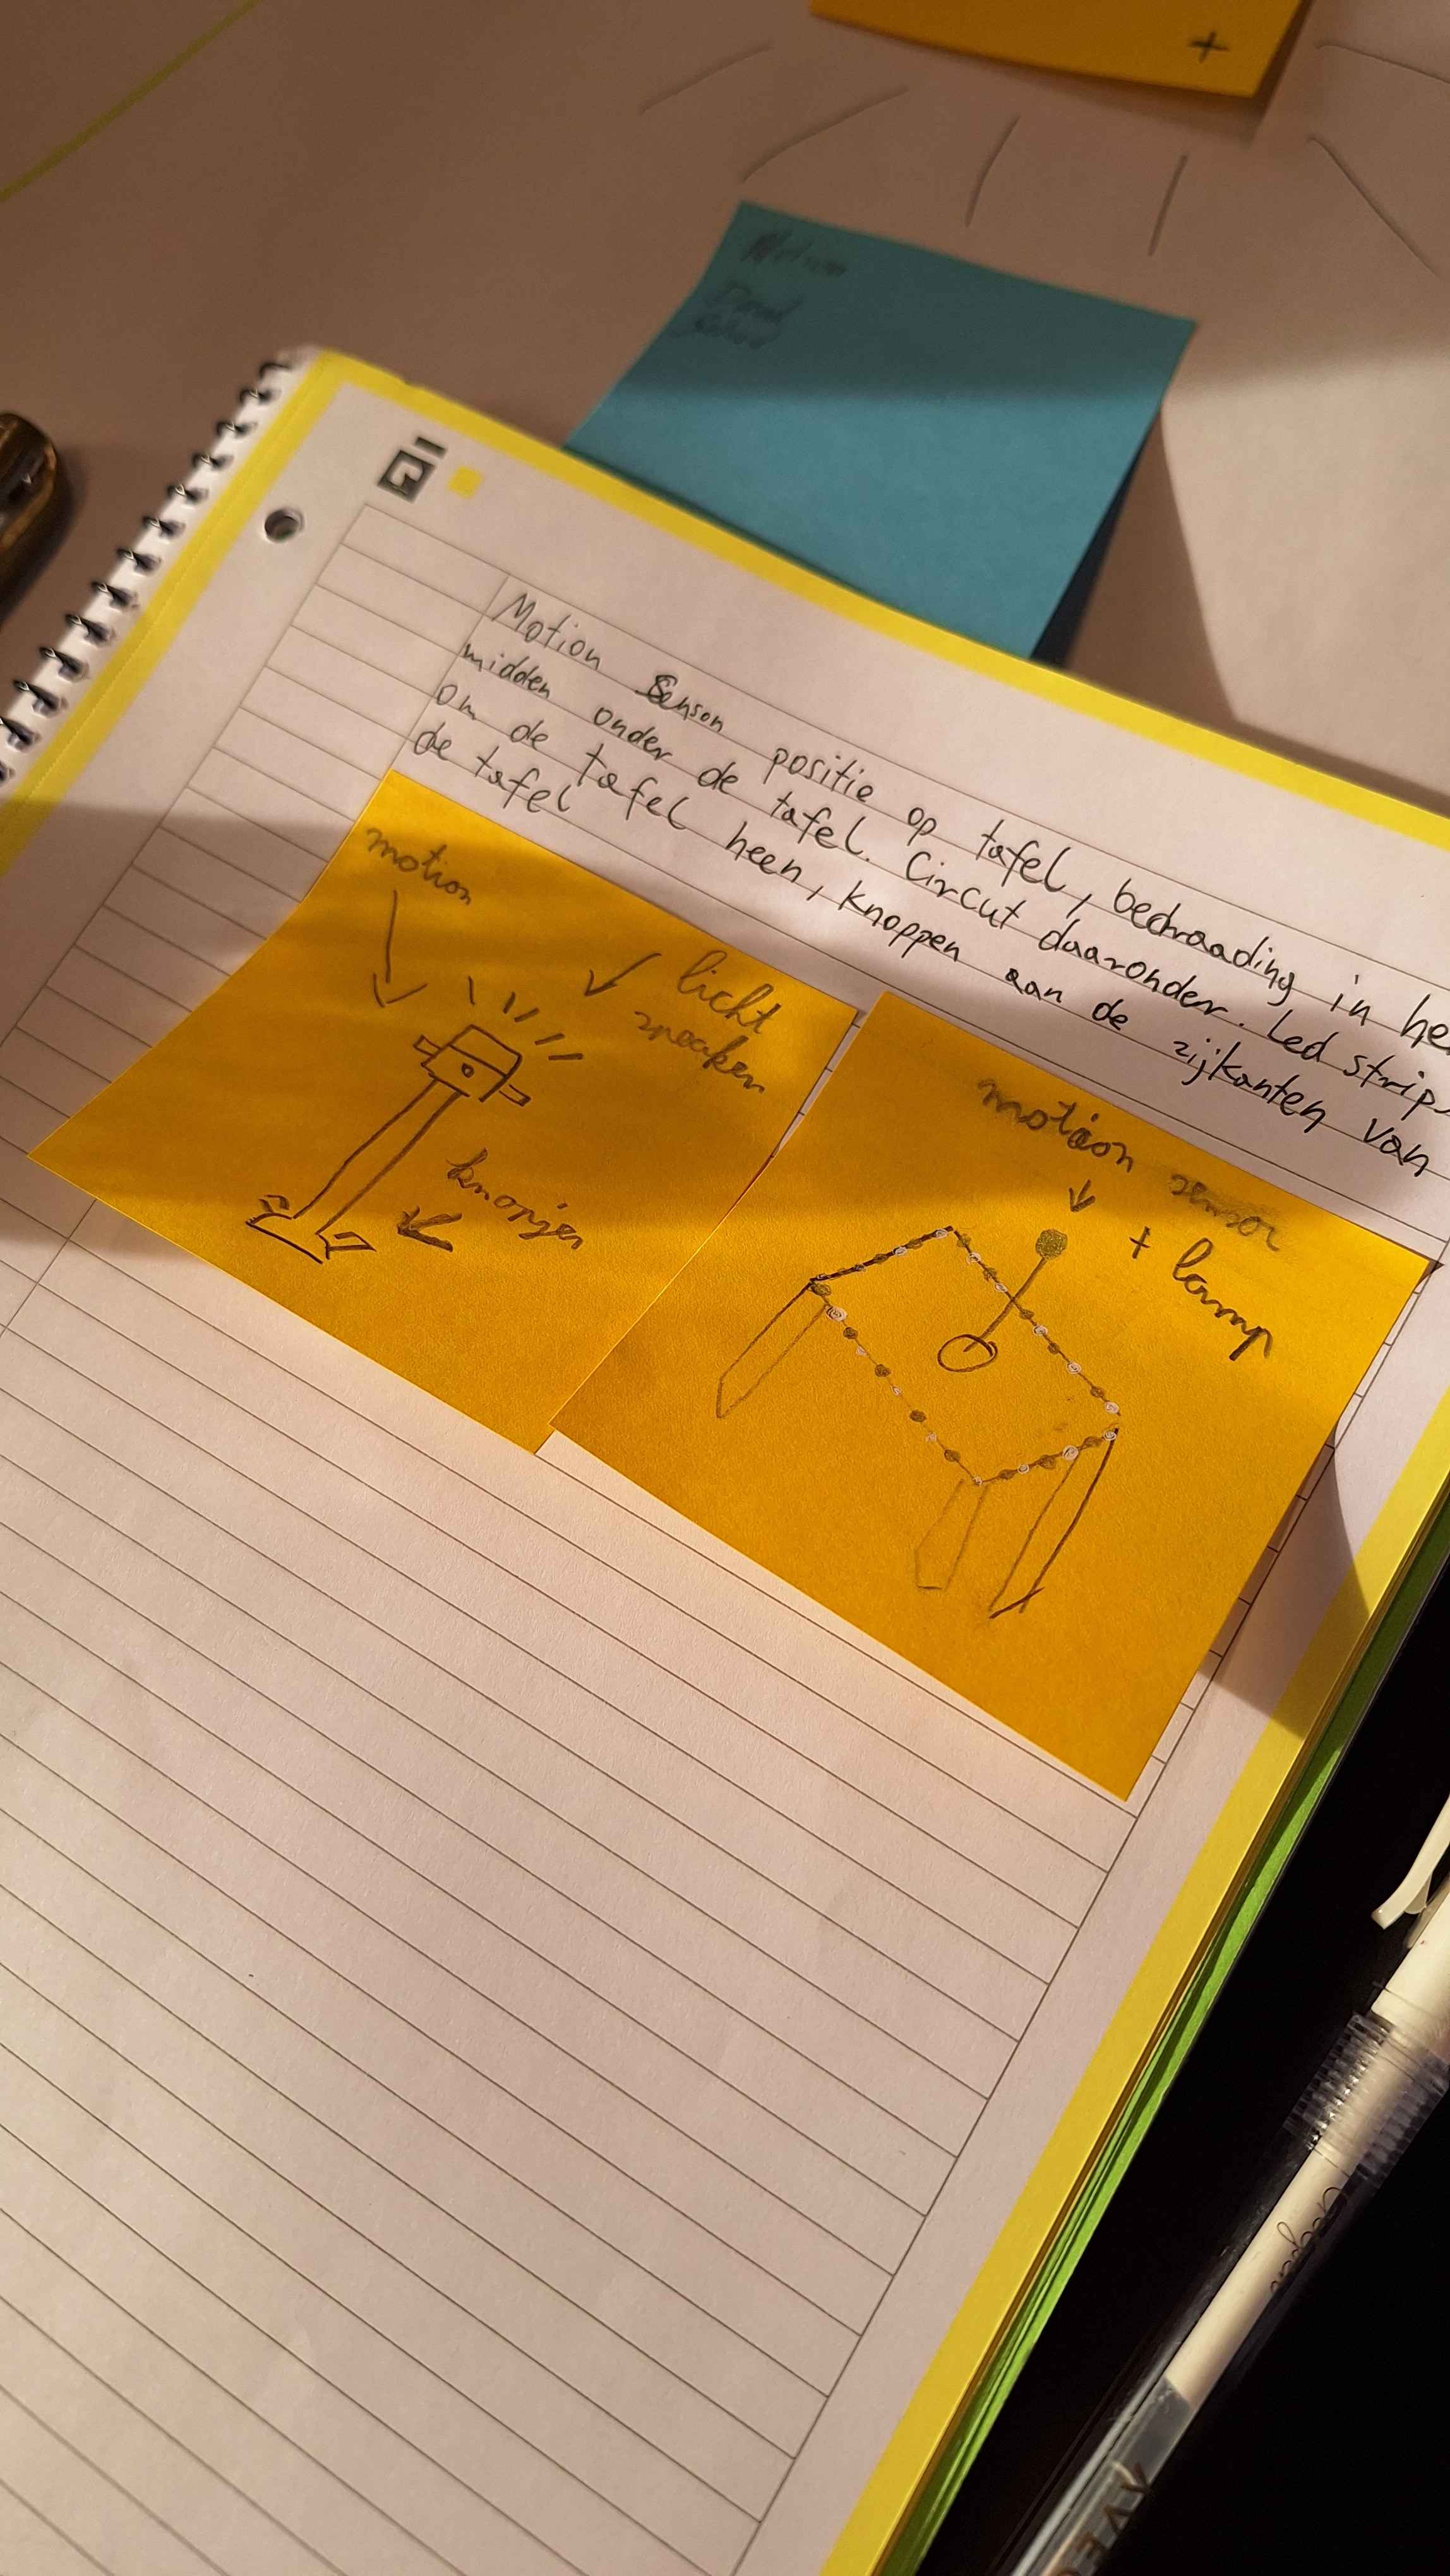 +
Motion
Motion Senson positie op tafel, bedraading in he
midden onder de tafel. Circut daaronder. Led strip
om de tafel heen, knoppen aan de zijkanten van
de tafel
motion
licht
speaker
knopjes
motion sensor
+ lamp